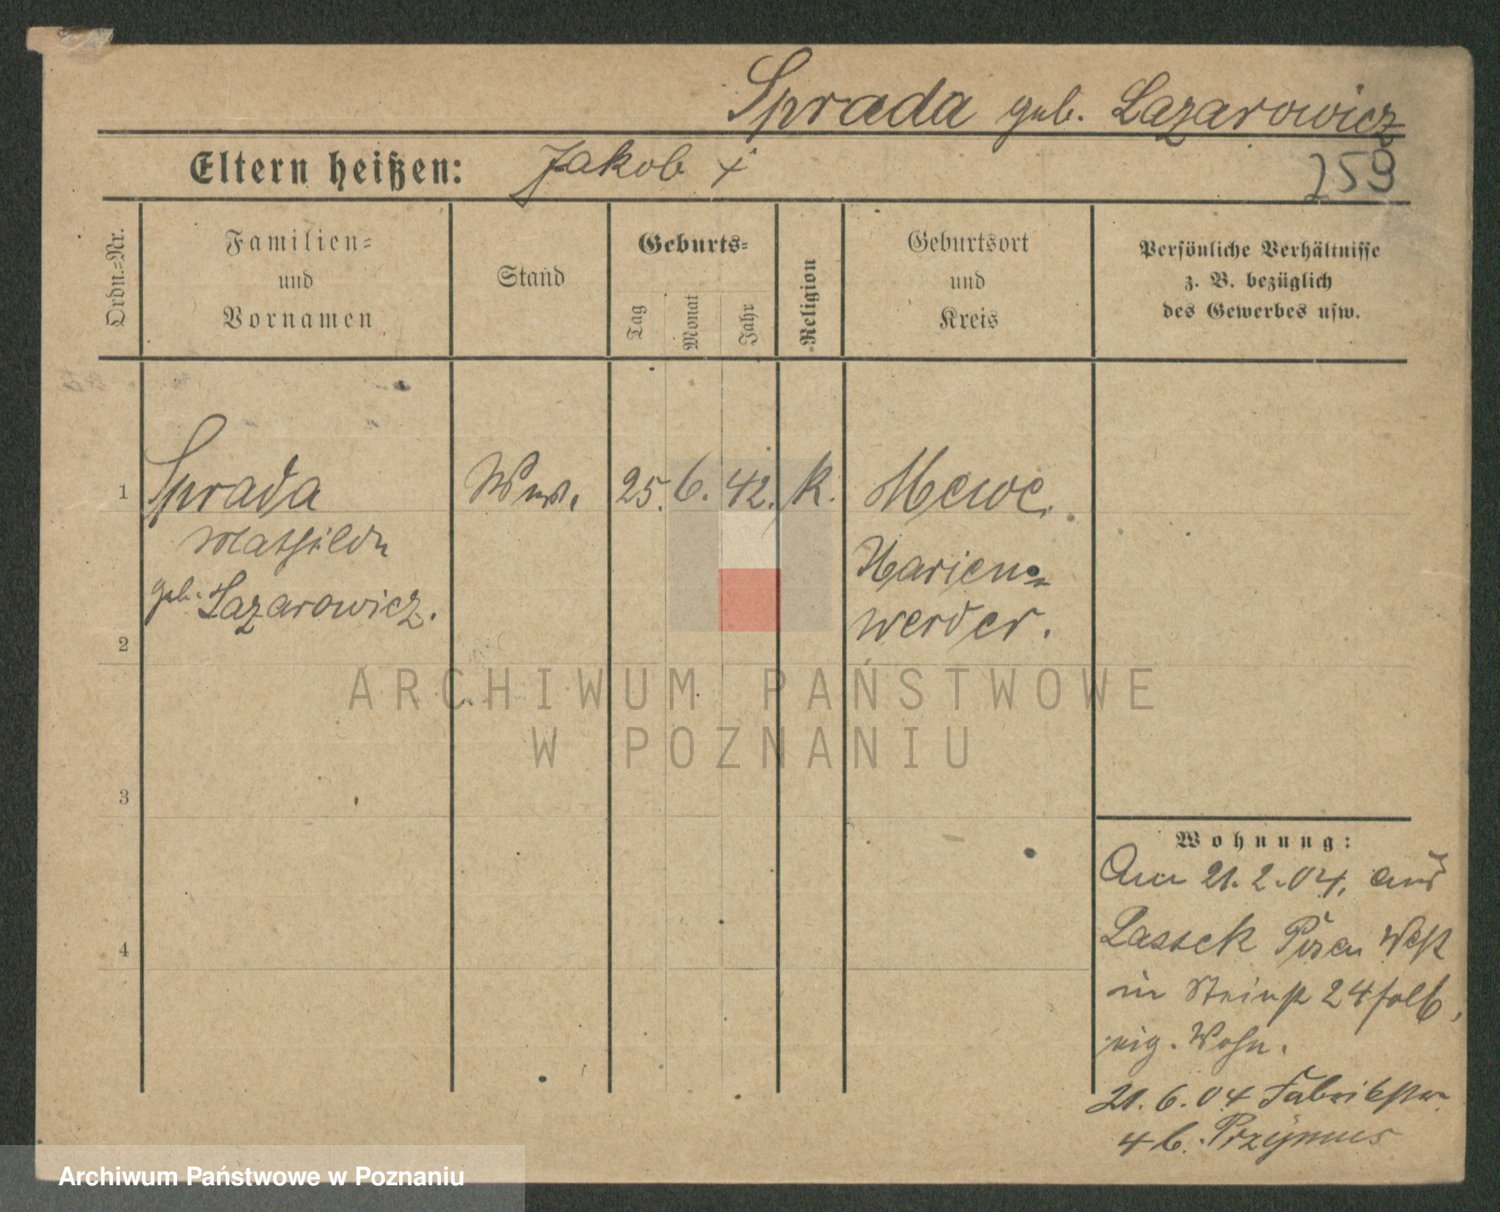 Sprada geb. Lazarowicz
Eltern heißen: Jakob +
259
Ordn.=Nr.
Familien=
und
Vornamen
Stand
Geburts=
Tag
Monat
Jahr
Religion
Geburtsort
und
Kreis
Persönliche Verhältnisse
z. B. bezüglich
des Gewerbes usw.
1 Sprada Ww. 25. 6. 42. k. Mewe.
Mathilde
Marien=
geb. Lazarowicz.
werder.
2
ARCHIWUM PAŃSTWOWE
W POZNANIU
3
Wohnung:
Am 21.2.04, aus
Lassek Posen West
in Steinstr 24
eig. Wohn.
4
21.6.04 Fabrikstr
4 b. Przymus
Archiwum Państwowe w Poznaniu